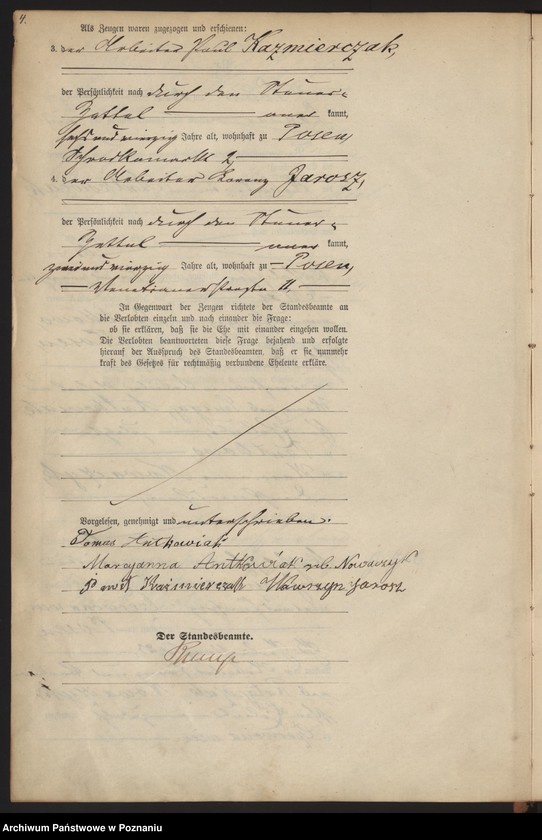 4.
Als Zeugen waren zugezogen und erschienen:
3. der Arbeiter Paul Kazmierczak,
der Persönlichkeit nach durch den Steuer-
Zettel aner kannt,
sechsundvierzig Jahre alt, wohnhaft zu Posen,
Schrodkamarkt 2,
4. der Arbeiter Lorenz Jarosz,
der Persönlichkeit nach durch den Steuer-
Zettel aner kannt,
zweiundvierzig Jahre alt, wohnhaft zu Posen,
Venetianerstraße 11.
In Gegenwart der Zeugen richtete der Standesbeamte an
die Verlobten einzeln und nach einander die Frage:
ob sie erklären, daß sie die Ehe mit einander eingehen wollen.
Die Verlobten beantworteten diese Frage bejahend und erfolgte
hierauf der Ausspruch des Standesbeamten, daß er sie nunmehr
kraft des Gesetzes für rechtmäßig verbundene Eheleute erkläre.
Vorgelesen, genehmigt und unterschrieben:
Tomas Antkowiak
Maryanna Antkowiak geb. Nowaczyk
Paweł Kaźmierczak Wawrzyn Jarosz
Der Standesbeamte.
Archiwum Państwowe w Poznaniu